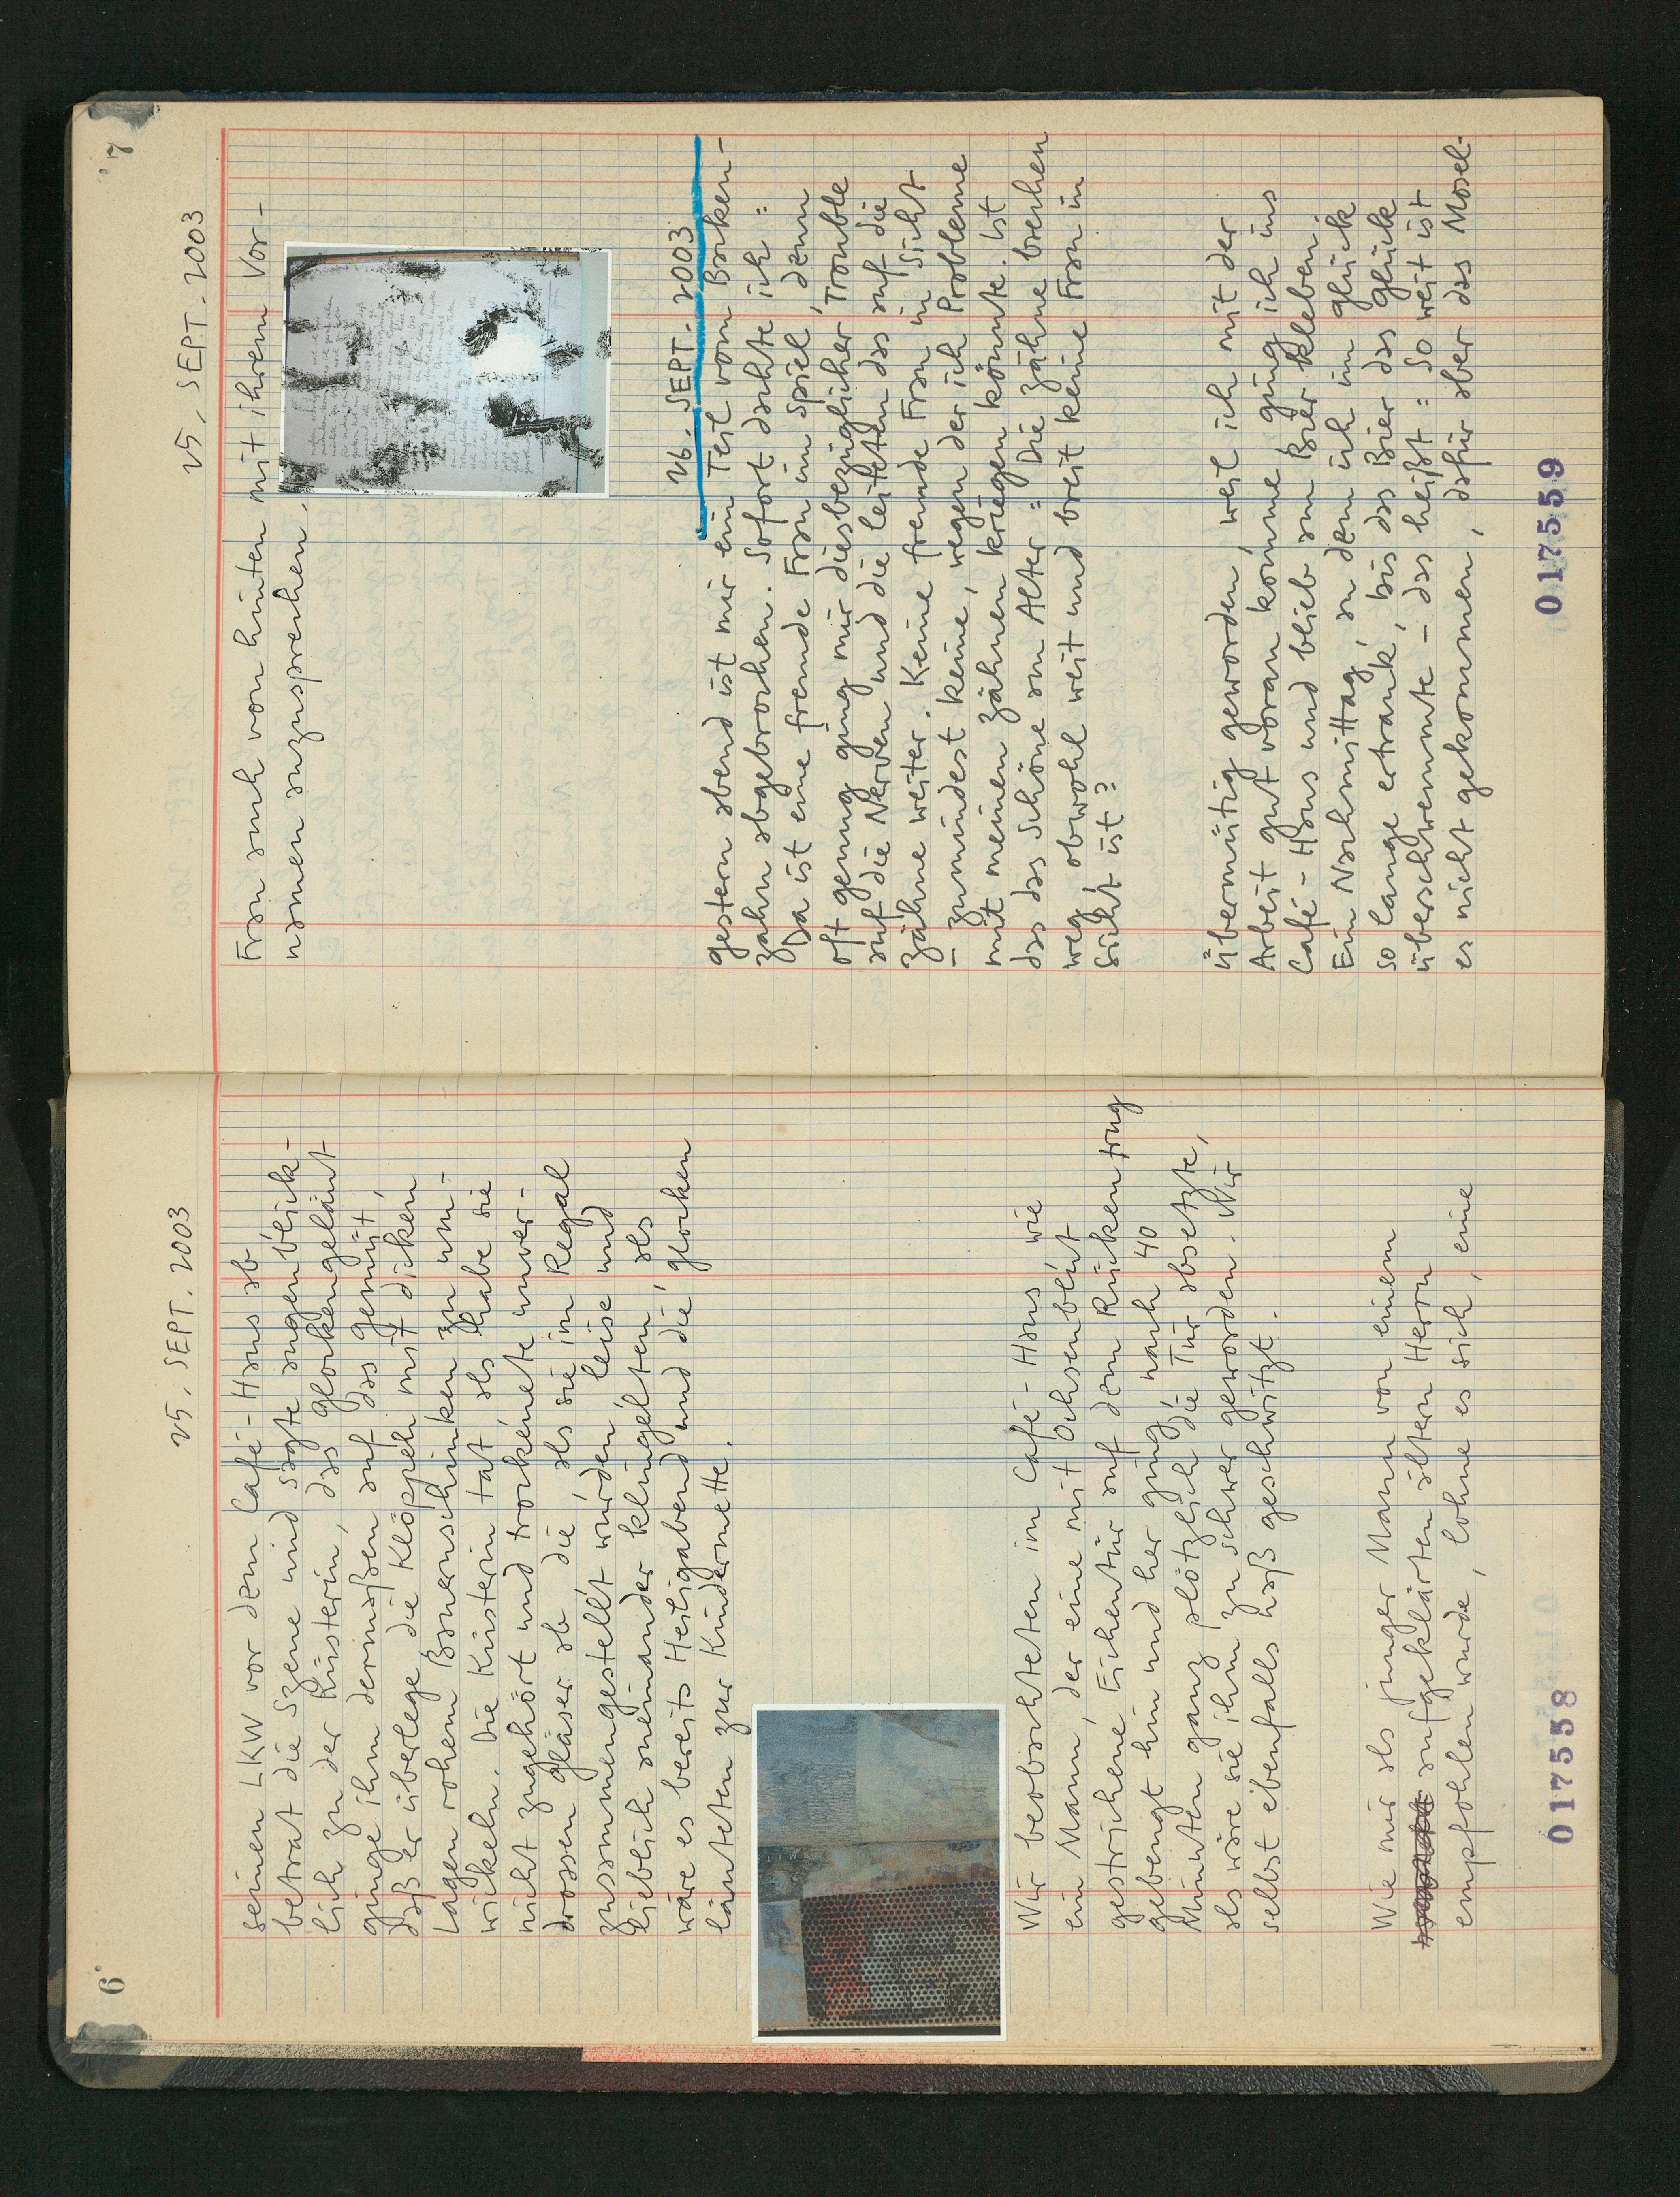 6
25. SEPT. 2003
seinen LKW vor dem Café-Haus ab,
betrat die Szene und sagte augenblick-
lich zu der Küsterin, das Glockengeläut
ginge ihm dermaßen auf das Gemüt,
daß er überlege, die Klöppel mit dicken
Lagen rohem Bauernschinken zu um-
wickeln. Die Küsterin tat als habe sie
nicht zugehört und trocknete unver-
drossen Gläser ab, die, als sie im Regal
zusammengestellt wurden, leise und
lieblich aneinander klingelten, als
wäre es bereits Heiligabend und die Glocken
läuteten zur Kindermette.
Wir beobachteten im Café-Haus, wie
ein Mann, der eine mit Ochsenblut
gestrichene Eichentür auf dem Rücken trug
gebeugt hin und her ging, nach 40
Minuten ganz plötzlich die Tür absetzte,
als wäre sie ihm zu schwer geworden. Wir
selbst ebenfalls haß geschwitzt.
Wie mir als junger Mann von einem
aufgeklärten ältern Herrn
empfohlen wurde, lohne es sich, eine
017558
7
25. SEPT. 2003
Frau auch von hinten mit ihrem Vor-
namen anzusprechen.
26. SEPT. 2003
gestern abend ist mir ein Teil vom Backen-
zahn abgebrochen. Sofort dachte ich:
Da ist eine fremde Frau im Spiel, denn
oft genug ging mir diesbezüglicher Trouble
auf die Nerven und die leiteten das auf die
Zähne weiter. Keine fremde Frau in Sicht
– zumindest keine, wegen der ich Probleme
mit meinen Zähnen kriegen könnte. Ist
das das Schöne am Alter: Die Zähne brechen
weg obwohl weit und breit keine Frau in
Sicht ist?
übermütig geworden, weil ich mit der
Arbeit gut voran komme, ging ich ins
Café-Haus und blieb am Bier kleben.
Ein Nachmittag, an dem ich im Glück
so lange ertrank, bis das Bier das Glück
überschwemmte – das heißt: So weit ist
es nicht gekommen, dafür aber das Mosel-
017559